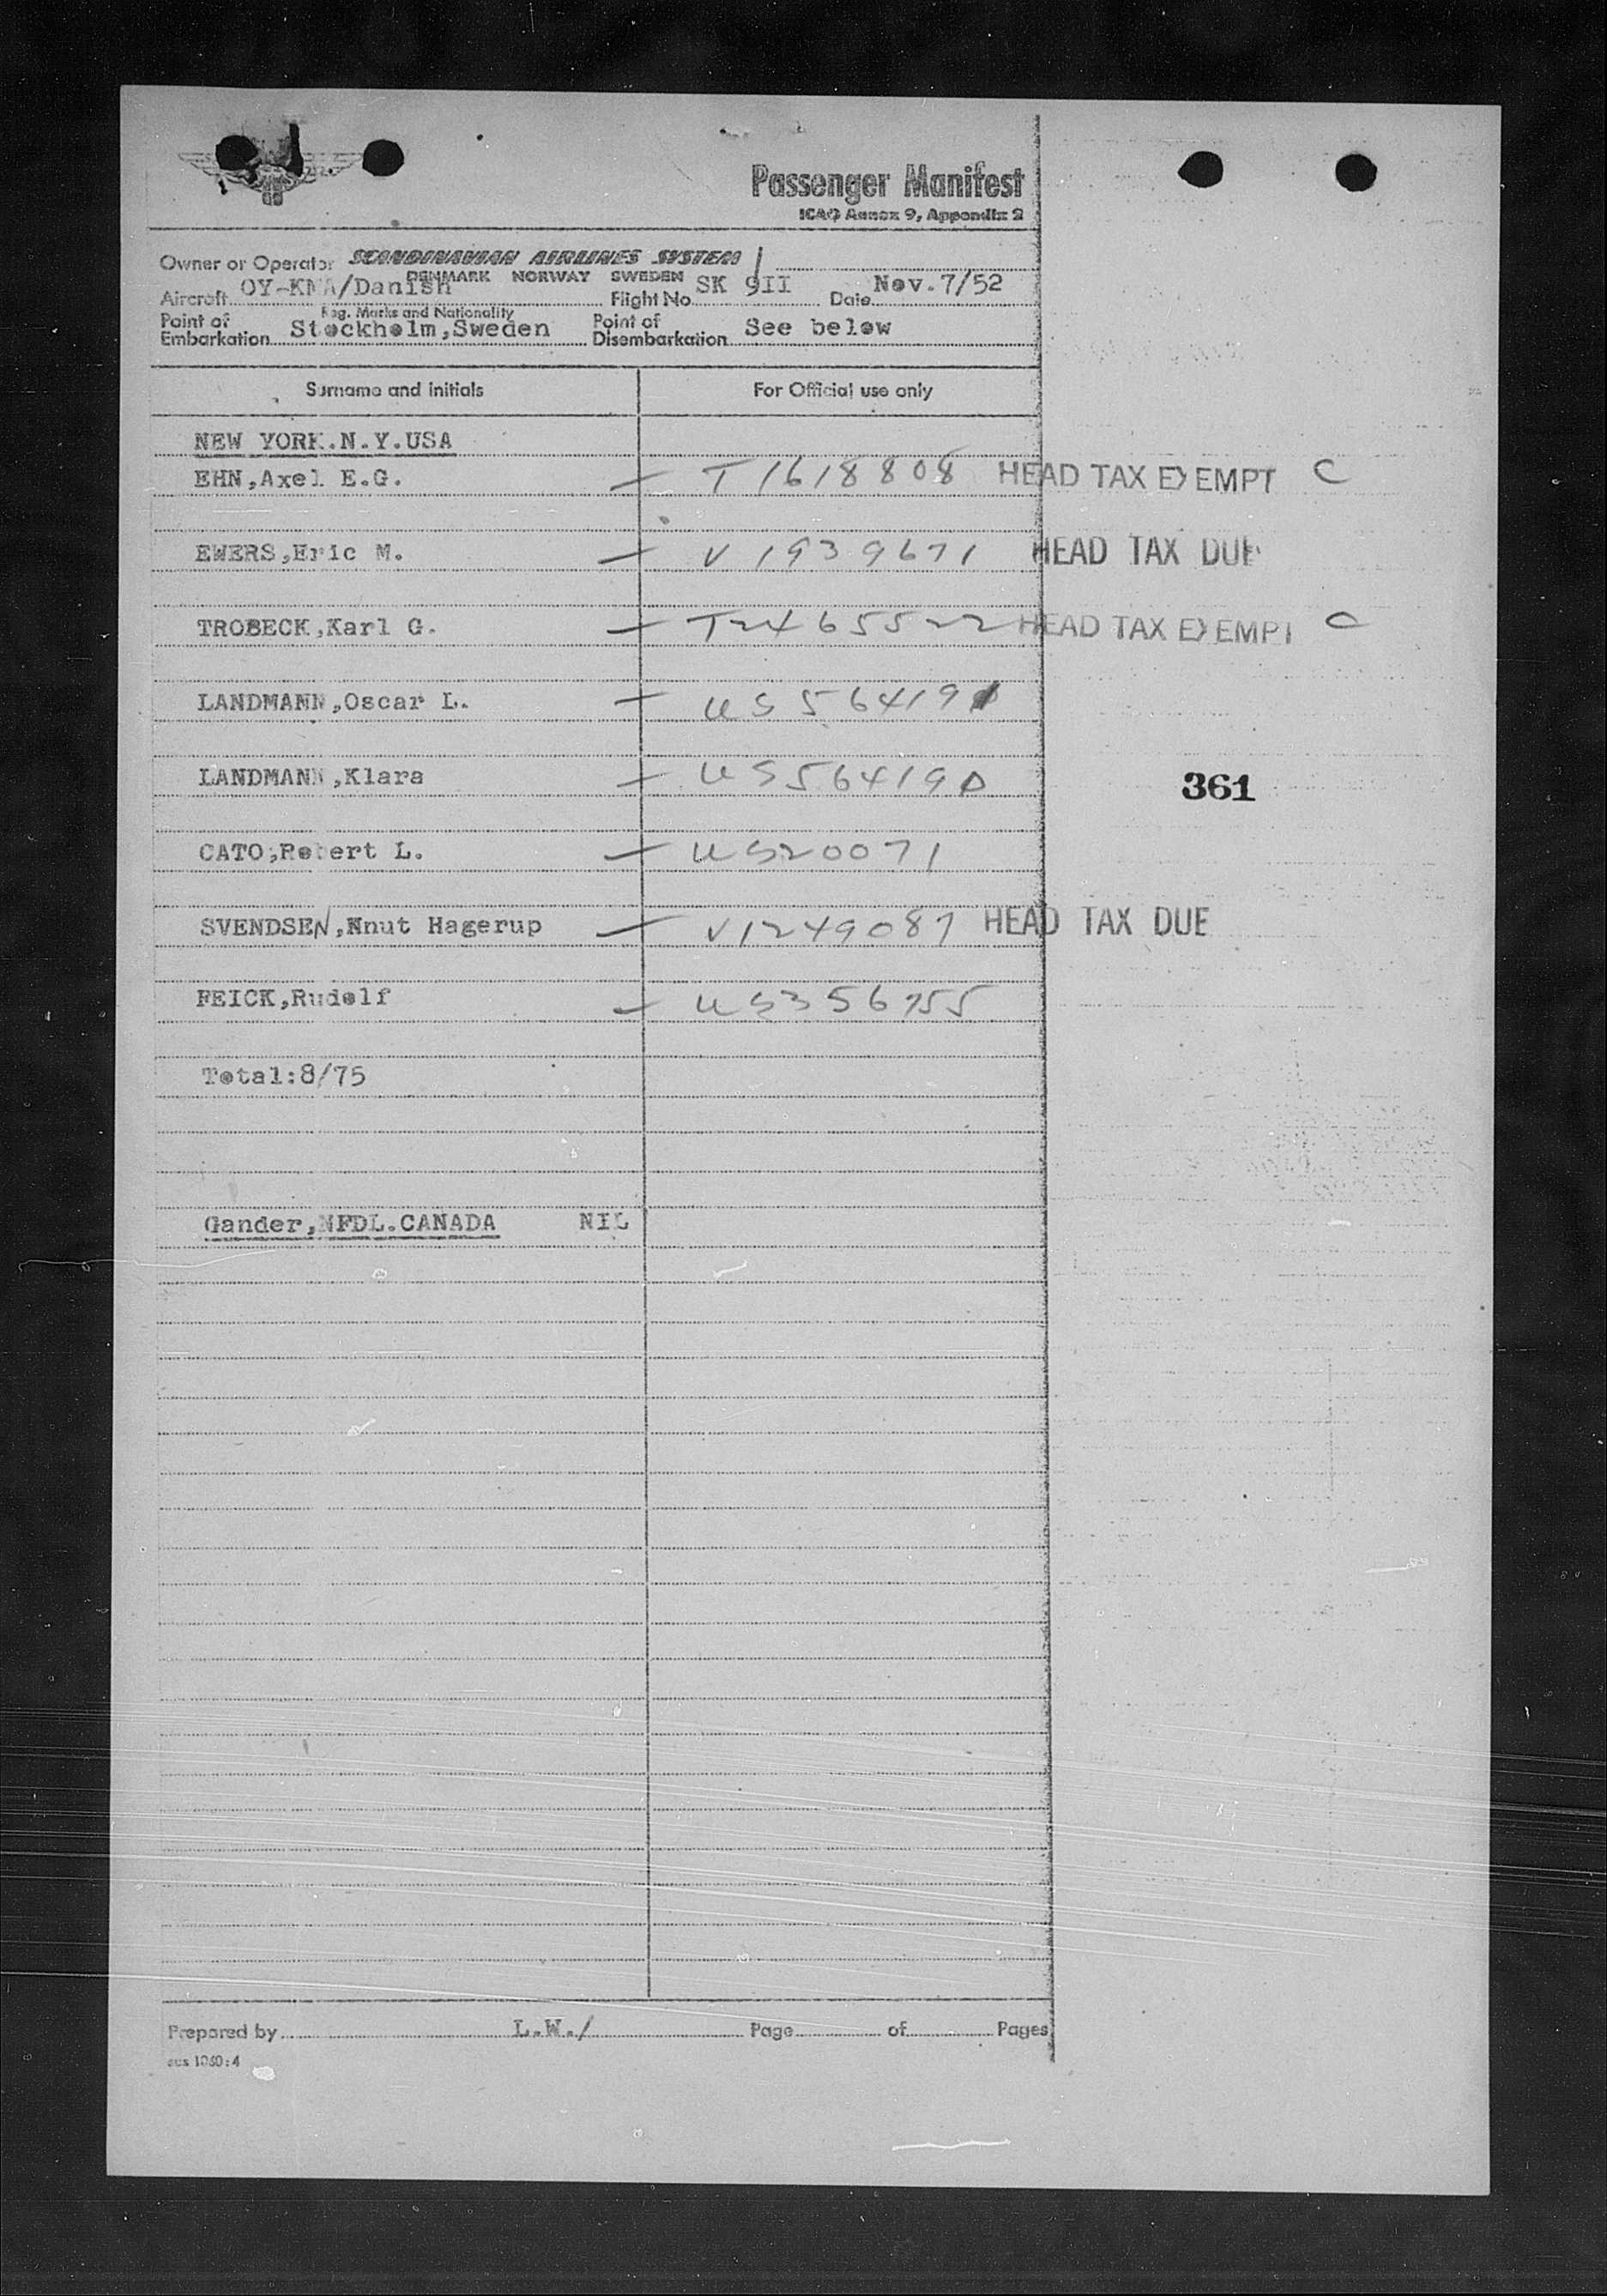 Passenger Manifest
ICAO Annex 9, Appendix 2
Owner or Operator SCANDINAVIAN AIRLINES SYSTEM
DENMARK NORWAY SWEDEN
Aircraft OY-KMA/Danish Flight No. SK 9II Date Nov.7/52
Reg. Marks and Nationality
Point of Embarkation Stockholm,Sweden Point of Disembarkation See below
Surname and initials For Official use only
NEW YORK.N.Y.USA
EHN,Axel E.G. — T1618808 HEAD TAX EXEMPT C
EWERS,Eric M. — V1939671 HEAD TAX DUE
TROBECK,Karl G. — T2465522 HEAD TAX EXEMPT C
LANDMANN,Oscar L. — US564191
LANDMANN,Klara — US564190
361
CATO,Robert L. — US20071
SVENDSEN,Knut Hagerup — V1249087 HEAD TAX DUE
FEICK,Rudolf — US356755
Total:8/75
Gander,NFDL.CANADA NIL
Prepared by L.W./ Page of Pages
1060:4